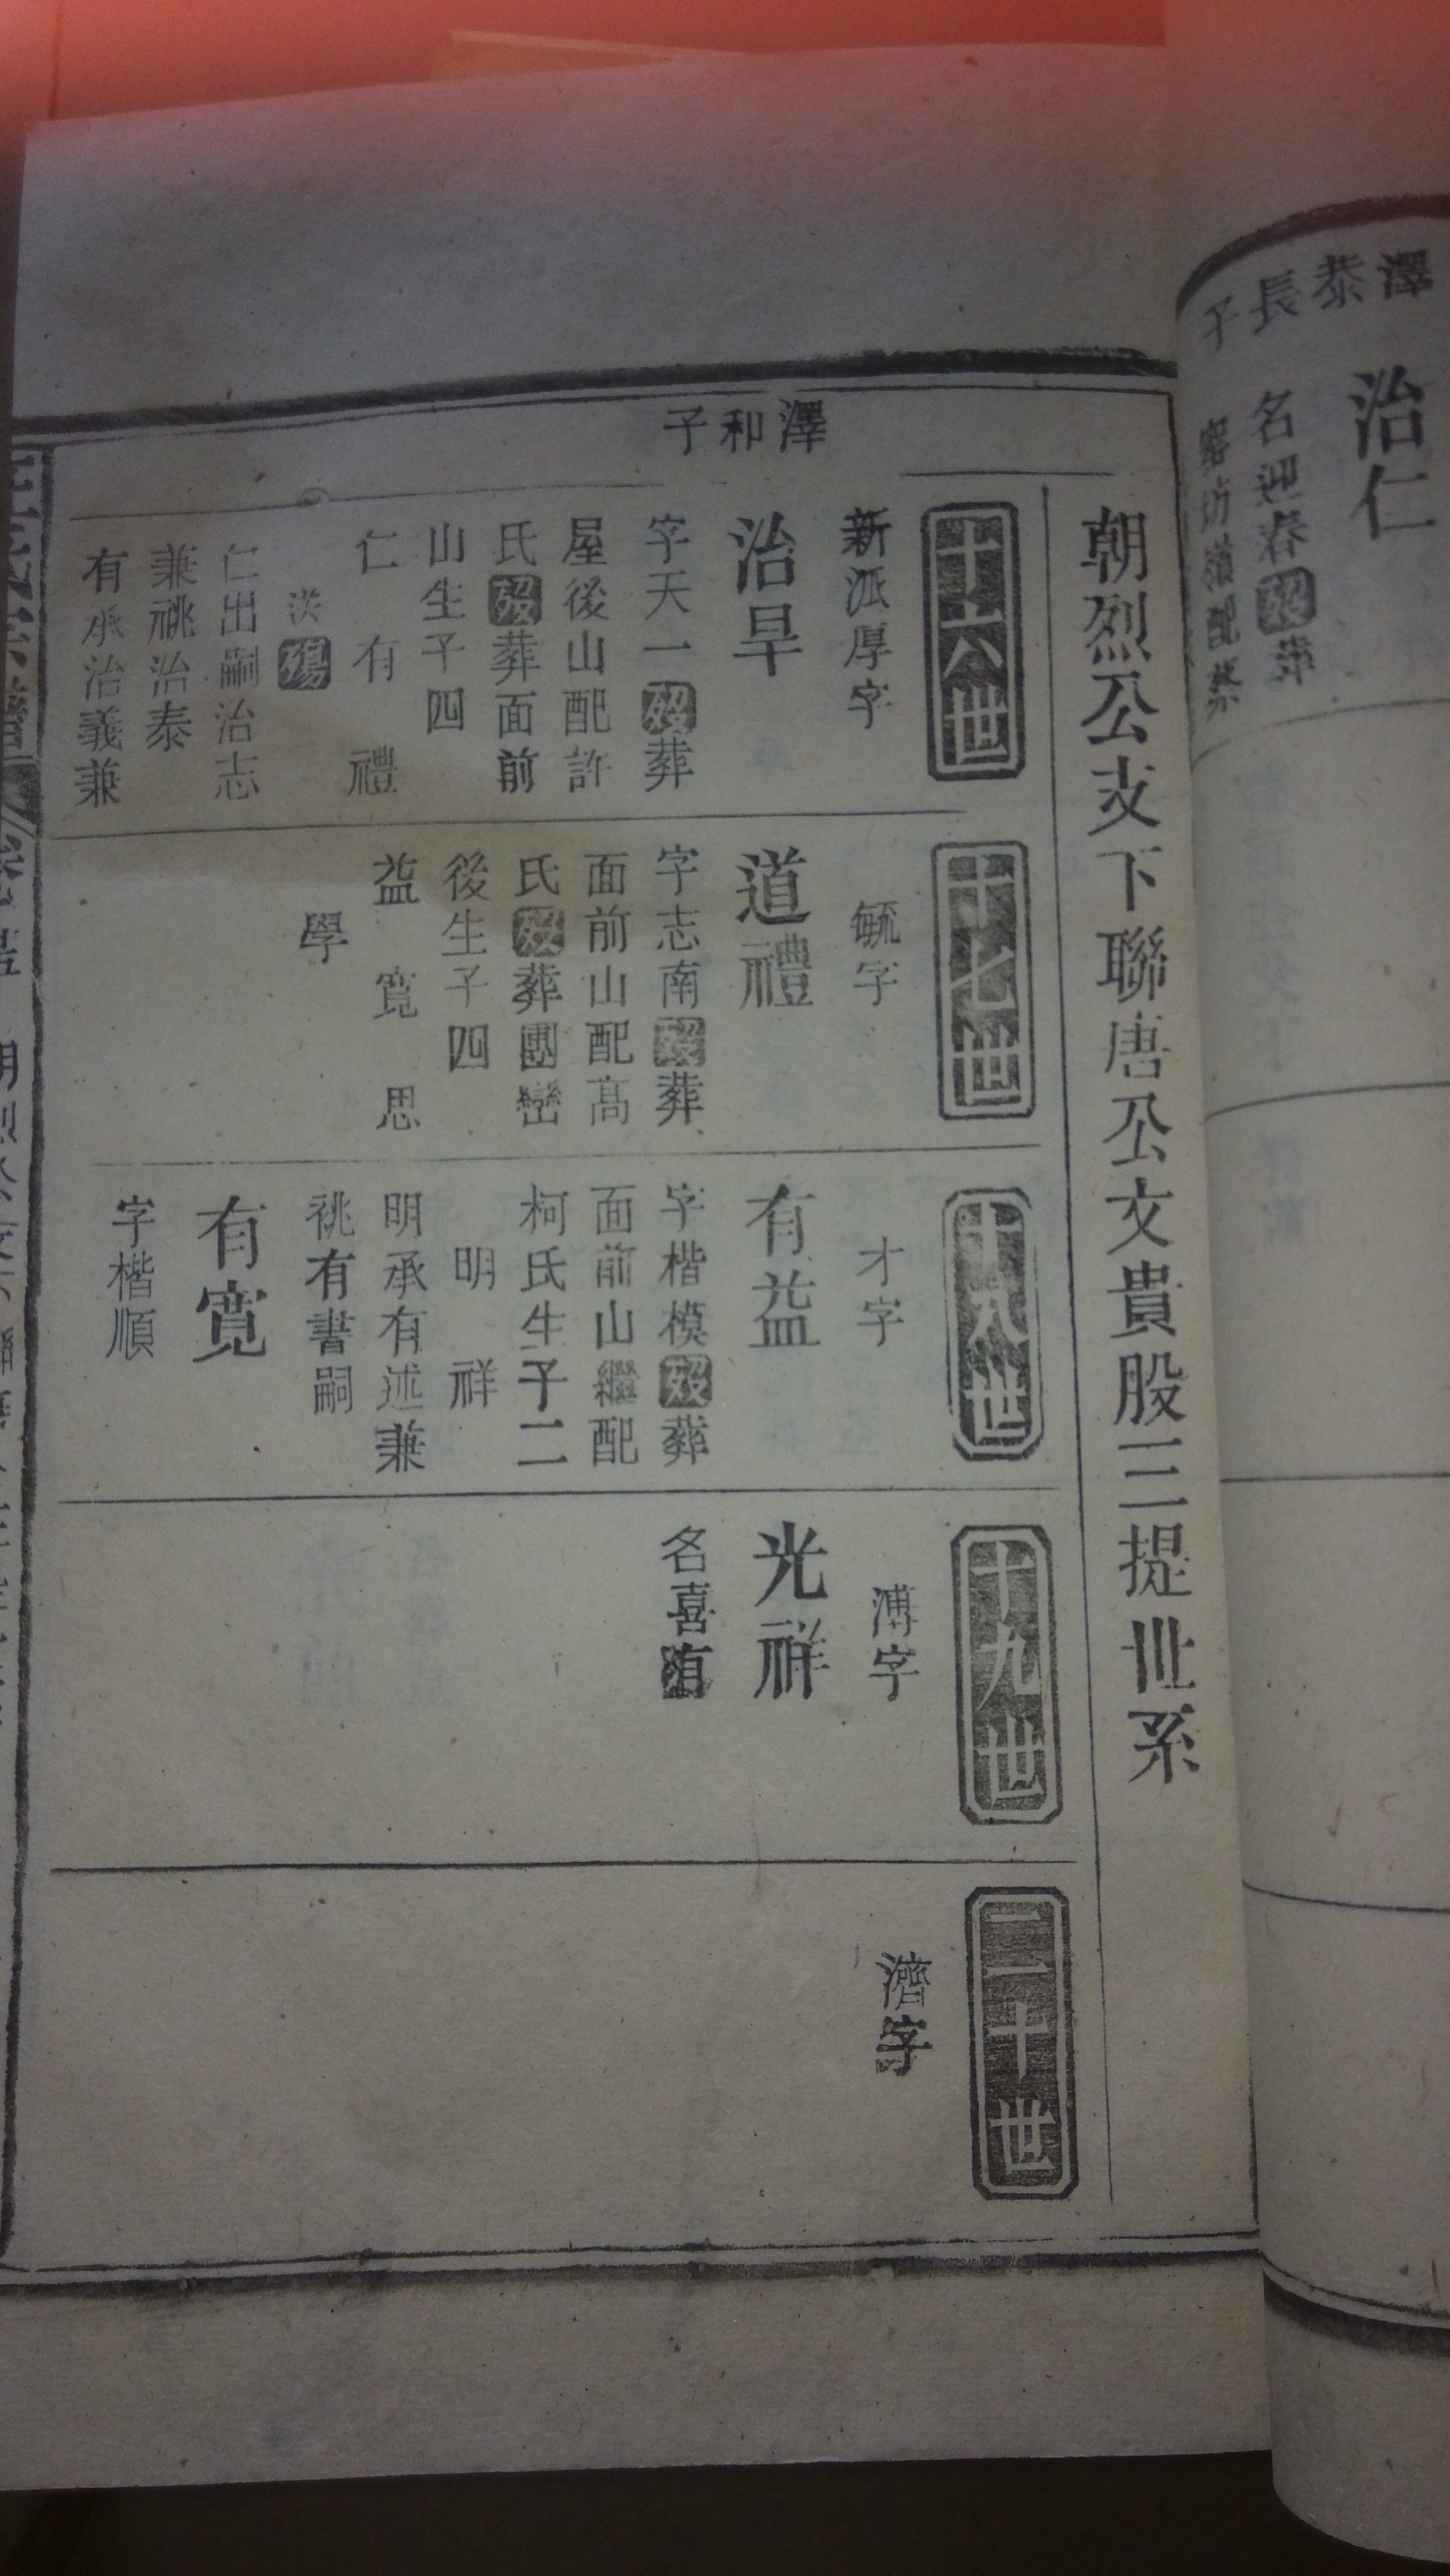 澤恭長子
治仁
名迎春歿葬
朝烈公支下聯唐公文貴股三提世系
澤和子
十六世
新派厚字
治旱
字天一歿葬
屋後山配許
氏歿葬面前
山生子四
仁有禮
洪殤
仁出嗣治志
兼祧治泰
有承治義兼
十七世
毓字
道禮
字志南歿葬
面前山配高
氏歿葬團巒
後生子四
益寬思
學
十八世
才字
有益
字楷模歿葬
面前山繼配
柯氏生子二
明祥
明承有述兼
祧有書嗣
有寬
字楷順
十九世
溥字
光祥
名喜
二十世
濟字